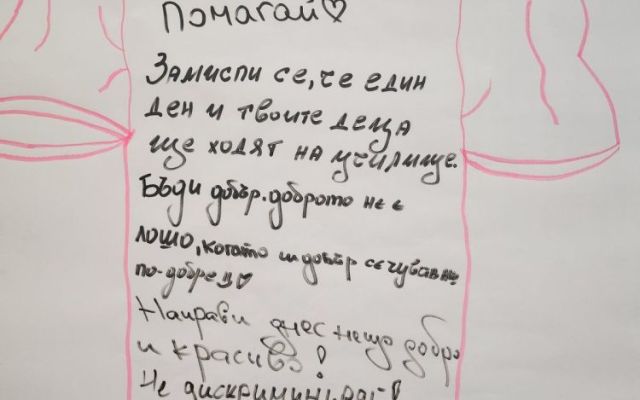 Помагай♡
Замисли се, че един
ден и твоите деца
ще ходят на училище.
Бъди добър. доброто не е
лошо, когато си добър се чувстваш
по-добре♡
Направи днес нещо добро
и красиво!
Не дискриминирай!